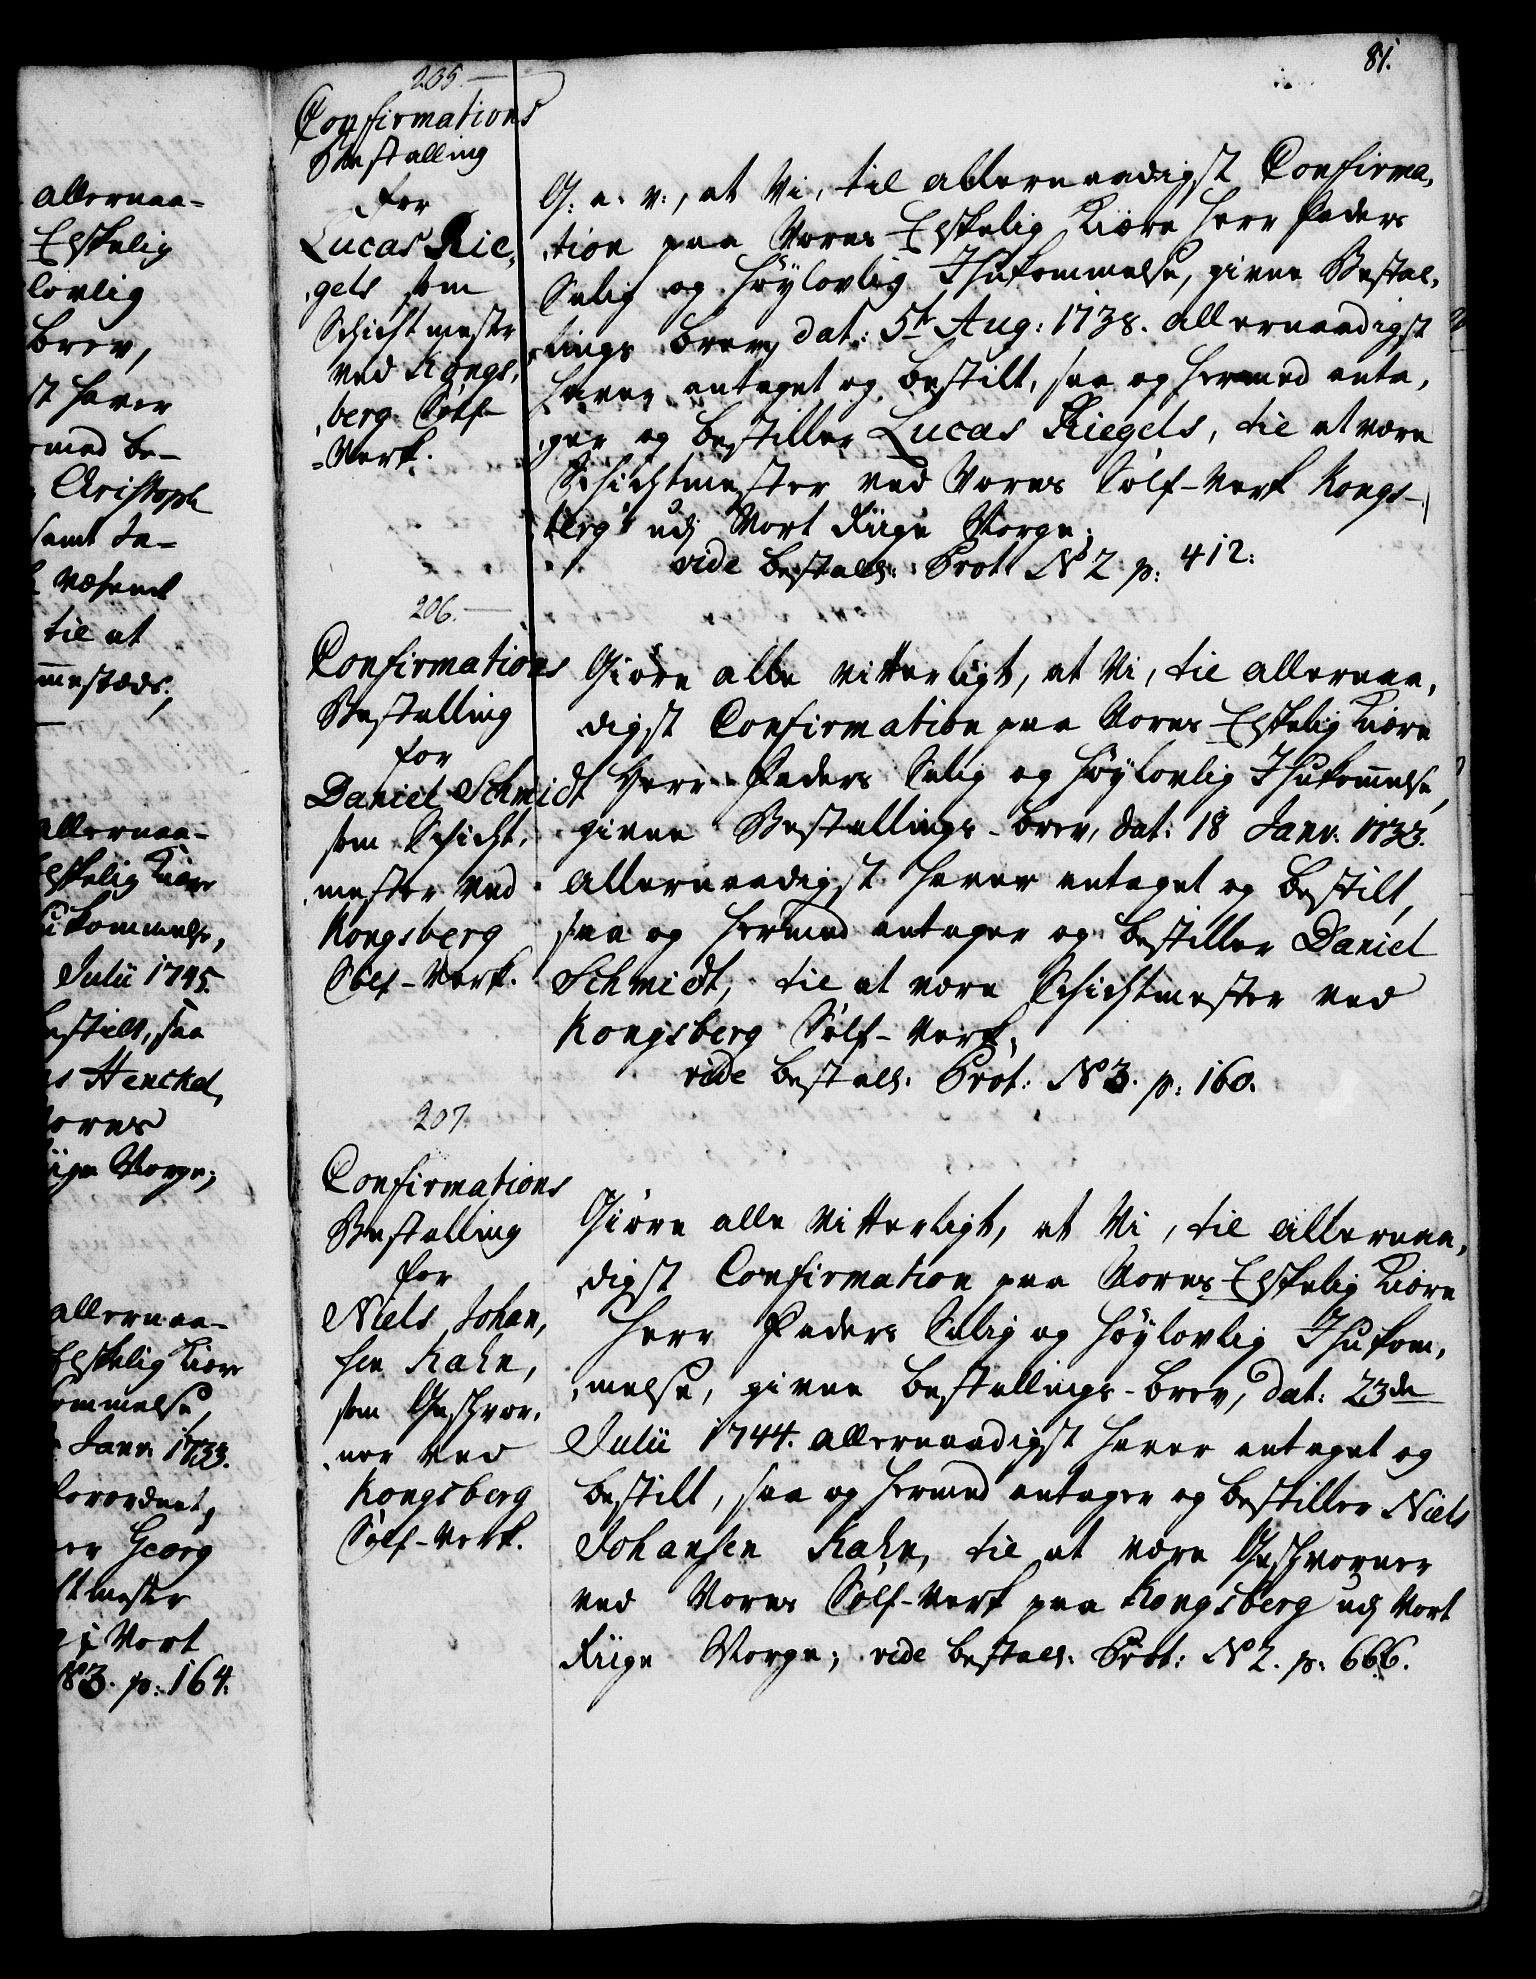 81.
allernaa-
Elskelig
lovlig
brev,
st haver
med be-
Christoph
samt Ja-
Væsenet
til at
mestæds;
allernaa-
Elskelig Kiære
ukommelse,
Julii 1745.
bestilt, saa
Henckel,
Vores
iige Norge;
allernaa-
Elskelig Kiære
ommelse,
Janv. 1733.
forordnet,
er Georg
mester
i Vort
No 3. p: 164.
205.
Confirmations
Bestalling
for
Lucas Rie,
,gels som
Schichtmester
ved Kongs,
,berg Sølf-
-Verk.
G: a. v:, at Vi, til allernaadigst Confirma,
,tion paa Vores Elskelig Kiære Herr Faders
Salig og Høylovlig Ihukommelse, givne Bestal,
,lings brev, dat: 5te Aug: 1738. allernaadigst
haver antaget og bestilt, saa og hermed anta,
,ger og bestiller Lucas Riegels, til at være
Schichtmester ved Vores Sølf-Verk Kongs-
berg udj Vort Riige Norge;
vide bestall: Prot: No 2 p: 412:
206.
Confirmations
Bestalling
for
Daniel Schmidt
som Schicht,
,mester ved
Kongsberg
Sølf-Verk.
Giøre alle vitterligt, at Vi, til allernaa,
,digst Confirmation paa Vores Elskelig Kiære
Herr Faders Salig og Høylovlig Ihukommelse,
givne Bestallings-brev, dat: 18 Janv. 1733.
allernaadigst haver antaget og bestilt,
saa og hermed antager og bestiller Daniel
Schmidt, til at være Schichtmester ved
Kongsberg Sølf-Verk;
vide bestall. Prot: No 3. p: 160.
207.
Confirmations
Bestalling
for
Niels Johan,
sen Kahn,
som Geschvor,
,ner ved
Kongsberg
Sølf-Verk.
Giøre alle vitterligt, at Vi, til allernaa,
,digst Confirmation paa Vores Elskelig Kiære
Herr Faders Salig og Høylovlig Ihukom,
,melse, givne bestallings-brev, dat: 23de
Julii 1744. allernaadigst haver antaget og
bestilt, saa og hermed antager og bestiller Niels
Johansen Kahn, til at være Geschvorner
ved Vores Sølf-Verk paa Kongsberg udj Vort
Riige Norge; vide bestall. Prot: No 2. p: 666.